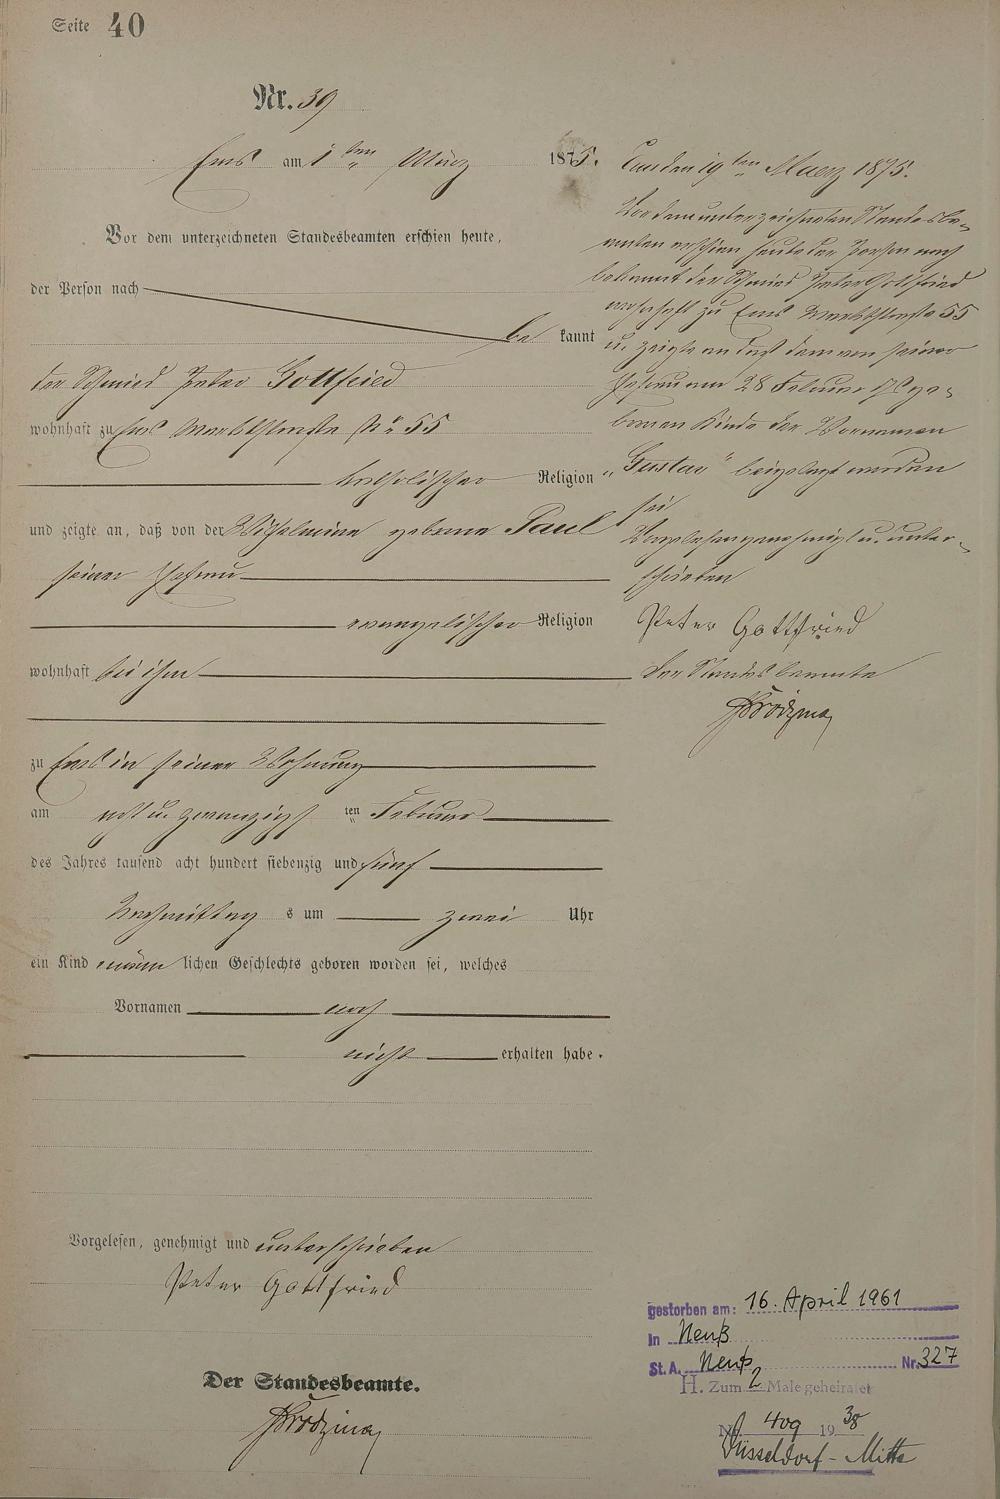 Seite 40
Nr. 39
Ems am 1ten März 1875.
Vor dem unterzeichneten Standesbeamten erschien heute,
der Person nach
be kannt
der Schmied Peter Gottfried
wohnhaft zu Ems Marktstraße No 55
katholischer Religion
und zeigte an, daß von der Wilhelmine geborne Paul
seiner Ehefrau
evangelischer Religion
wohnhaft bei ihm
zu Ems in seiner Wohnung
am acht u. zwanzigsten Februar
des Jahres tausend acht hundert siebenzig und fünf
Nachmittag s um zwei Uhr
ein Kind männ lichen Geschlechts geboren worden sei, welches
Vornamen noch
nicht erhalten habe.
Vorgelesen, genehmigt und unterschrieben
Peter Gottfried
Der Standesbeamte.
Ems den 19ten Maerz 1875.
Vor dem unterzeichneten Standesbe-
amten erschien heute der Person nach
bekannt der Schmied Peter Gottfried
wohnhaft zu Ems Marktstraße 55
u. zeigte an daß dem von seiner
Ehefrau am 28 Februar ge-
bornen Kinde der Vornamen
„Gustav" beigelegt worden
sei
Vorgelesen genehmigt u. unter-
schrieben
Peter Gottfried
Der Standesbeamte
gestorben am: 16. April 1961
in Neuß
St.A. Neuß Nr. 327
H. Zum 2 Male geheiratet
Nr. 409 1938
Düsseldorf-Mitte